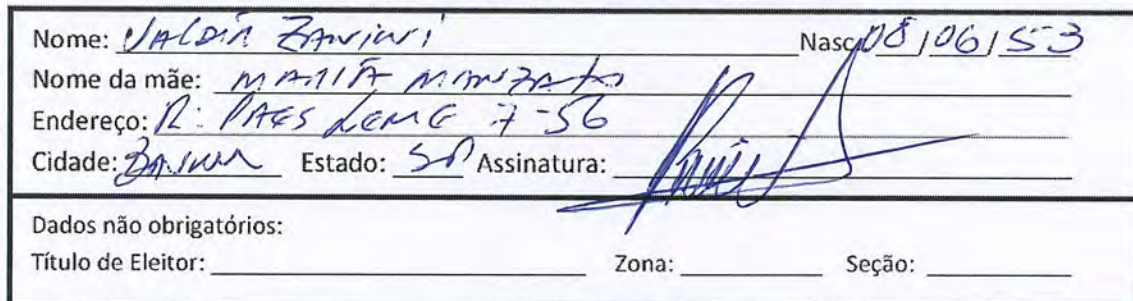 Nome: VALDIR ZANINI Nasc 08/06/53
Nome da mãe: MARIA MANZATO
Endereço: R: PAES LEME 7-56
Cidade: BAURU Estado: SP Assinatura:
Dados não obrigatórios:
Título de Eleitor: Zona: Seção: